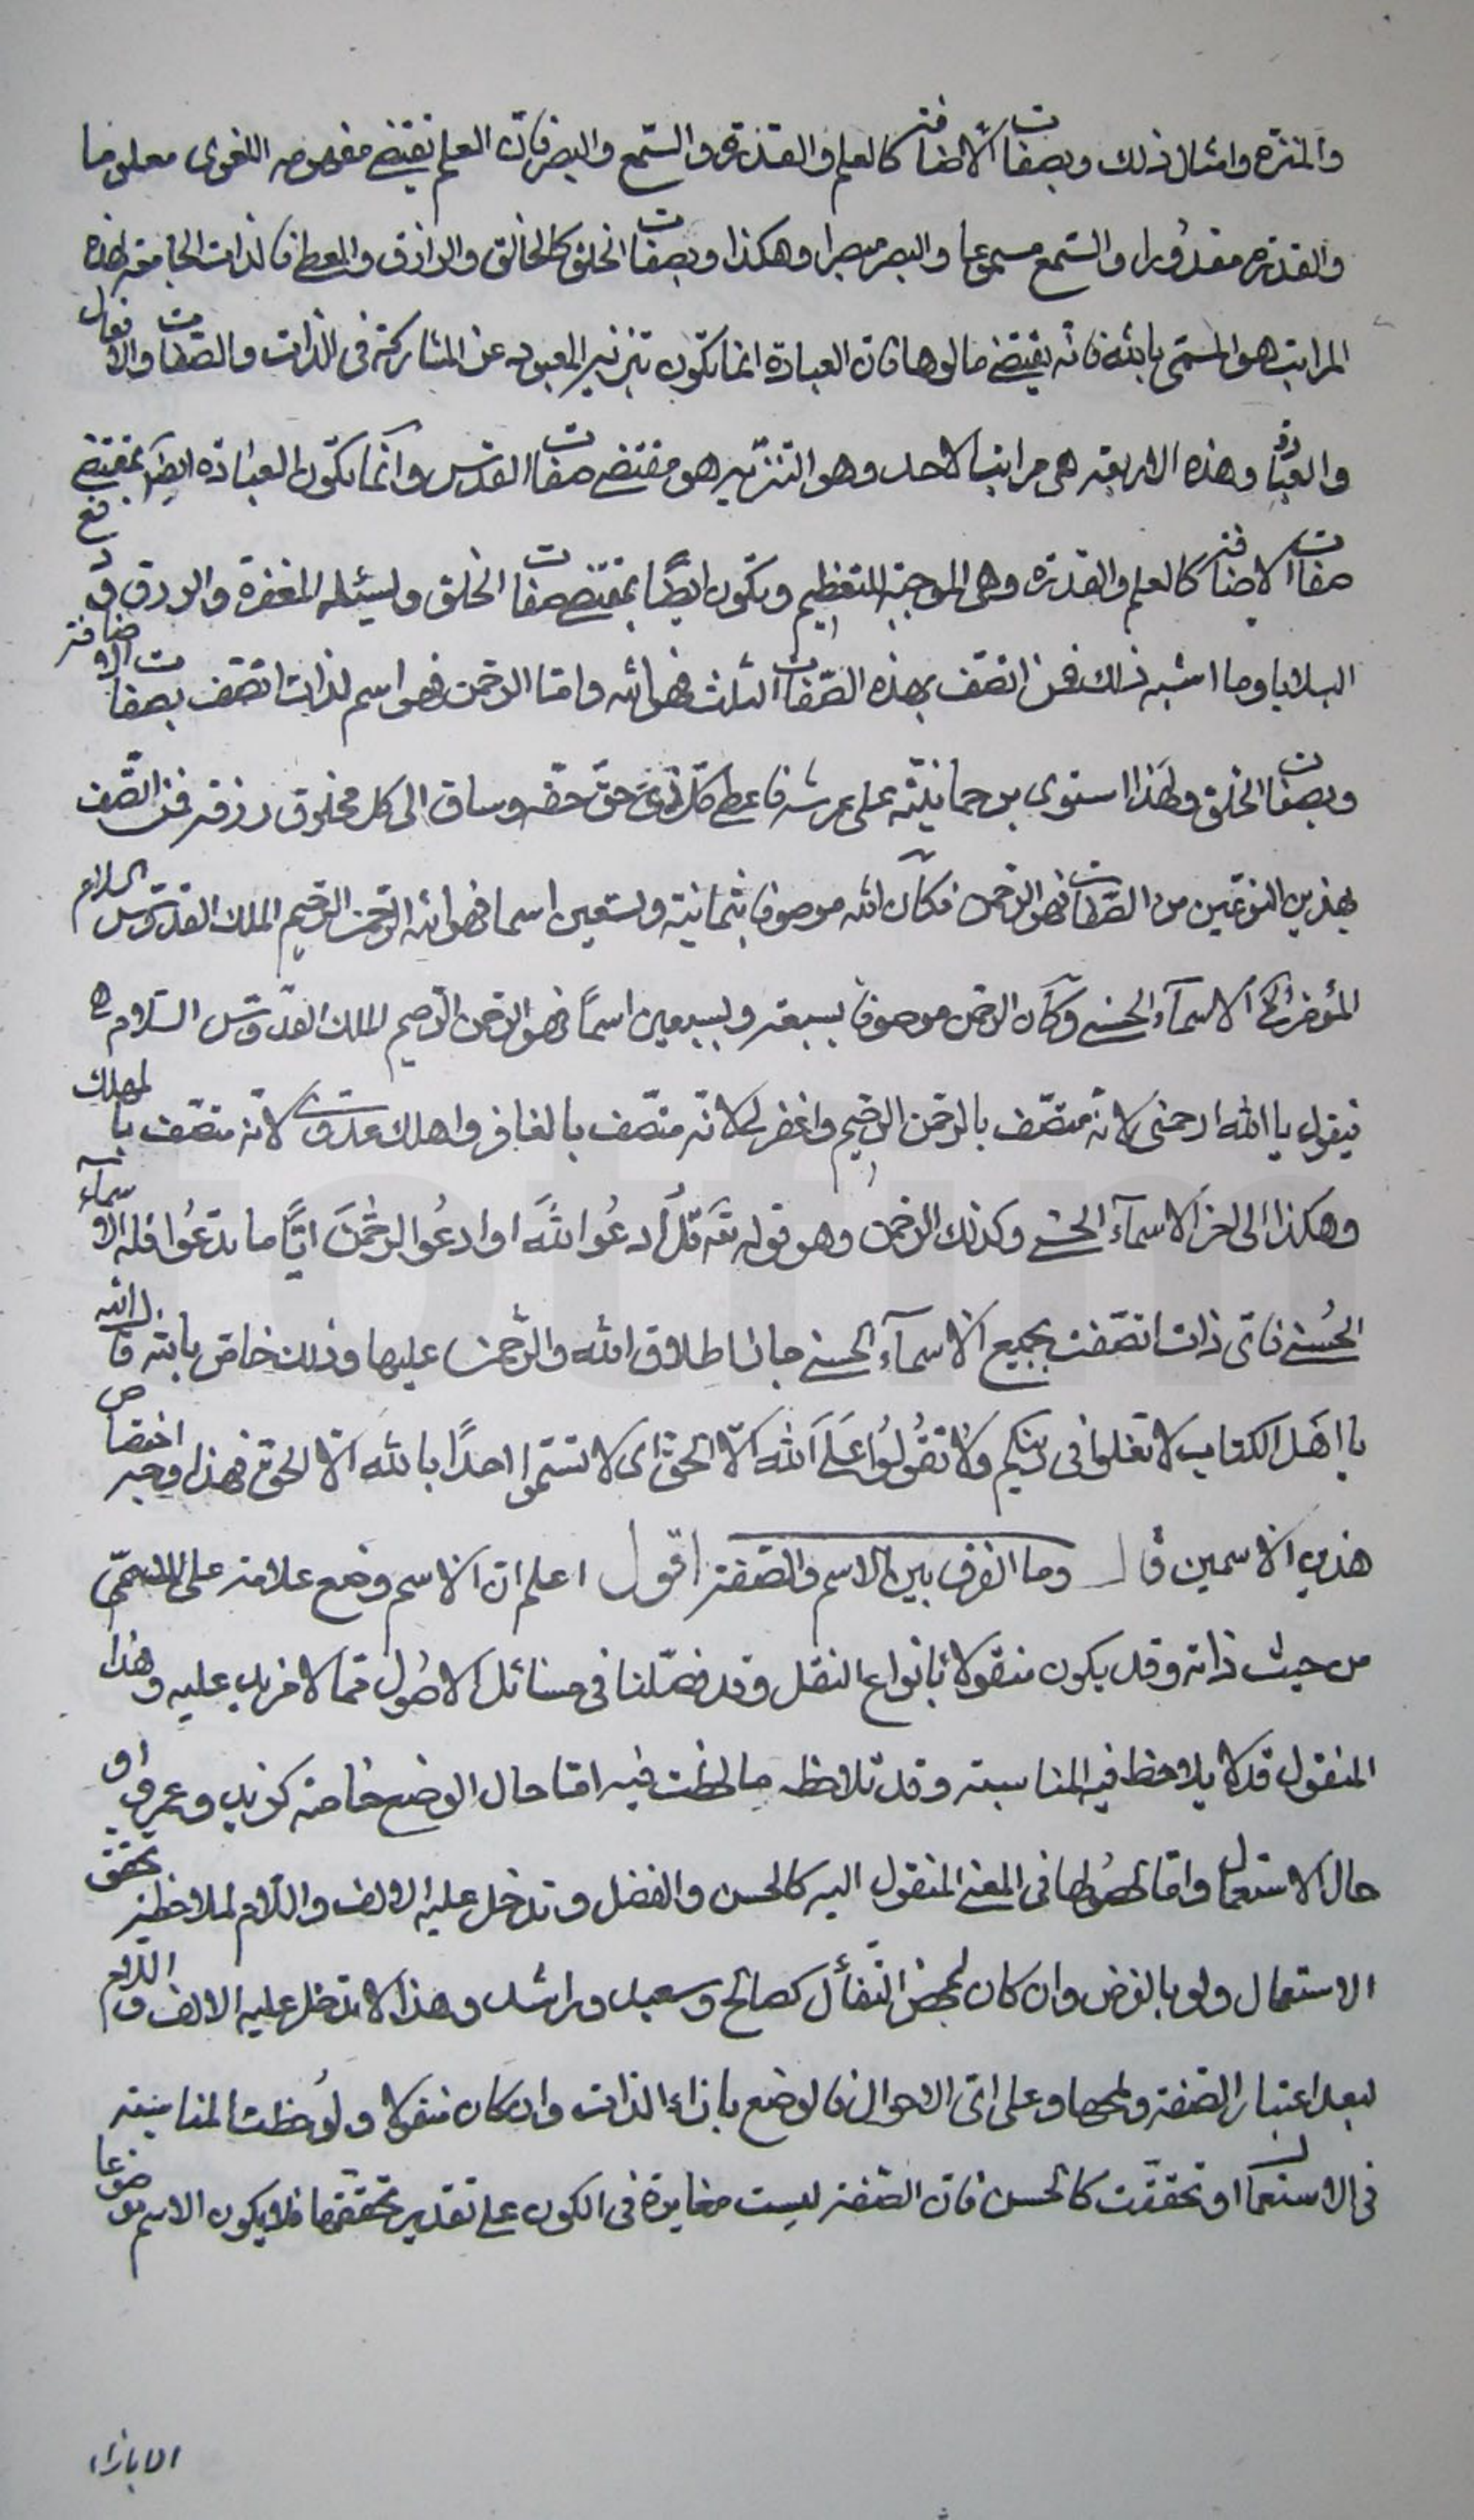 والمنزه وامثال ذلك وبصفات الاضافة كالعلم والقدرة والسّمع والبصر فانّ العلم يقتضي مفهومه اللغوى معلوما
والقدرة مقدُورا والسّمع مسموعا والبصر مبصرا وهكذا وبصفات الخلق كالخالق والرازق والمعطى فالذات الجامعة لهذه
المراتب هو المسمّى بالله فانه يقتضي مالوها فان العبادة انما يكون بتنزيه المعبود عن المشاركة فى الذات والصّفات والافعال
والعبادة وهذه الاربعة هى مراتب الاحد وهو التنزّيه هو مقتضى صفات القدس وانّما يكون العبادة ايضاً بمقتضى
صفات الاضافة كالعلم والقدرة وهى الموجبة للتعظيم ويكون ايضًا بمقتضى صفات الخلق وليسئله المغفرة والرزق ودفع
البلايا وما اشبه ذلك فمن اتصّف بهذه الصّفات الثلث فهو الله وامّا الرحمن فهو اسم لذات اتصّف بصفات الاضافة
وبصفات الخلق ولهَذا استوى برحمانيّته على عرشه فاعطى كلّ ذى حقّ حقّه وساق الى كل مخلوق رزقه فمن اتصّف
بهذين النوعّين من الصّفات فهو الرّحمن فكان الله موصوفا بثمانية وتسعين اسما فهو الله الرّحمن الرّحيم الملك القدّوس السلام
المؤمن الى اخر الاسماء الحسنى وكان الرحمن موصوفا بسبعة وتسعين اسماً فهو الرّحمن الرّحيم الملك القدّوس السّلام
فيقول يا الله ارحمنى لانّه متصّف بالرحّمن الرحّيم واغفر لى لانّه متصّف بالغافر واهلك عدوّى لانّه متصّف بالمهلك
وهكذا الى اخر الاسماء الحسنى وكذلك الرّحمن وهو قوله تع قُل ادعُوا اللهَ او ادعُوا الرحمنَ ايّاً ما تدعُوا فله الاسماء
الحُسنى فاىّ ذات اتصّفت بجميع الاسماء الحسنى جاز اطلاق الله والرّحمن عليها وذلك خاصّ بالله قال الله
يا اهَل الكتاب لا تغلوا فى دينكم ولا تقُولُوا عَلَى الله الّا الحقّ اى لا تسمّوا احدًا بالله الّا الحقّ فهذا وجه اختصاص
هذين الاسمين قال وما الفرق بين الاسم والصّفة اقول اعلم ان الاسم وضع علامة على المسمّى
من حيث ذاته وقد يكون منقولا بانواع النقل وقد فصّلنا فى مسائل الاصُول مما لا مزيد عليه وهذا
المنقول قد لا يلاحظ فيه المناسبة وقد تلاحظ ما لحظت فيه امّا حال الوضع خاصة كزيد وعمرو او
حال الاستعمال وامّا لحصُولها فى المعنى المنقول اليه كالحسن والفضل وتدخل عليه الالف واللّام لملاحظة تحقق
الاستعمال ولو بالفرض وان كان لمحض التّفأل كصالح وسعيد وراشد وهذا لا تدخل عليه الالف واللّام
لبعد اعتبار الصّفة ولمحها وعلى اىّ الاحوال فالوضع بازاء الذات وان كان منقولا ولُوحظت المناسبة
فى الاستعمال او تحققّت كالحسن فان الصّفة ليست مغايرة فى الكون على تقدير تحققّها فلا يكون الاسم موضوعا
الا بازاء